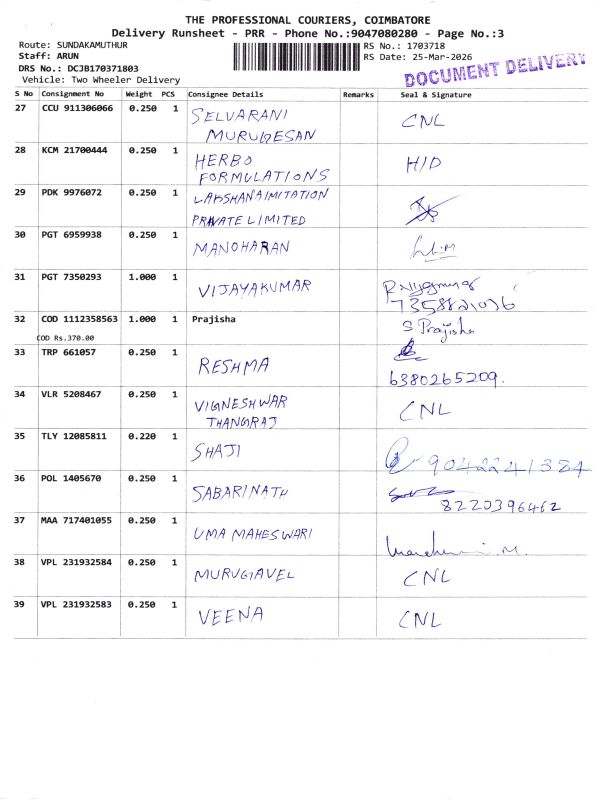 THE PROFESSIONAL COURIERS, COIMBATORE
Delivery Runsheet - PRR - Phone No.:9047080280 - Page No.:3
Route: SUNDAKAMUTHUR
Staff: ARUN
DRS No.: DCJB170371803
Vehicle: Two Wheeler Delivery
RS No.: 1703718
RS Date: 25-Mar-2026
DOCUMENT DELIVERY
S No Consignment No Weight PCS Consignee Details Remarks Seal & Signature
27 CCU 911306066 0.250 1 SELVARANI
MURUGESAN CNL
28 KCM 21700444 0.250 1 HERBO
FORMULATIONS H/D
29 PDK 9976072 0.250 1 LAKSHANAIMITATION
PRIVATE LIMITED
30 PGT 6959938 0.250 1 MANOHARAN
31 PGT 7350293 1.000 1 VIJAYAKUMAR
7358821076
32 COD 1112358563 1.000 1 Prajisha S Prajisha
COD Rs.370.00
33 TRP 661057 0.250 1 RESHMA
6380265209.
34 VLR 5208467 0.250 1 VIGNESHWAR
THANGRAJ CNL
35 TLY 12085811 0.220 1 SHAJI 9042241384
36 POL 1405670 0.250 1 SABARINATH
8220396462
37 MAA 717401055 0.250 1 UMA MAHESWARI
38 VPL 231932584 0.250 1 MURUGAVEL CNL
39 VPL 231932583 0.250 1 VEENA CNL